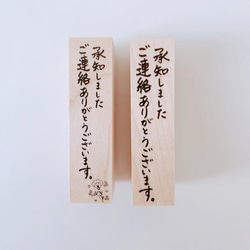 承知しました
ご連絡ありがとうございます。
承知しました
ご連絡ありがとうございます。